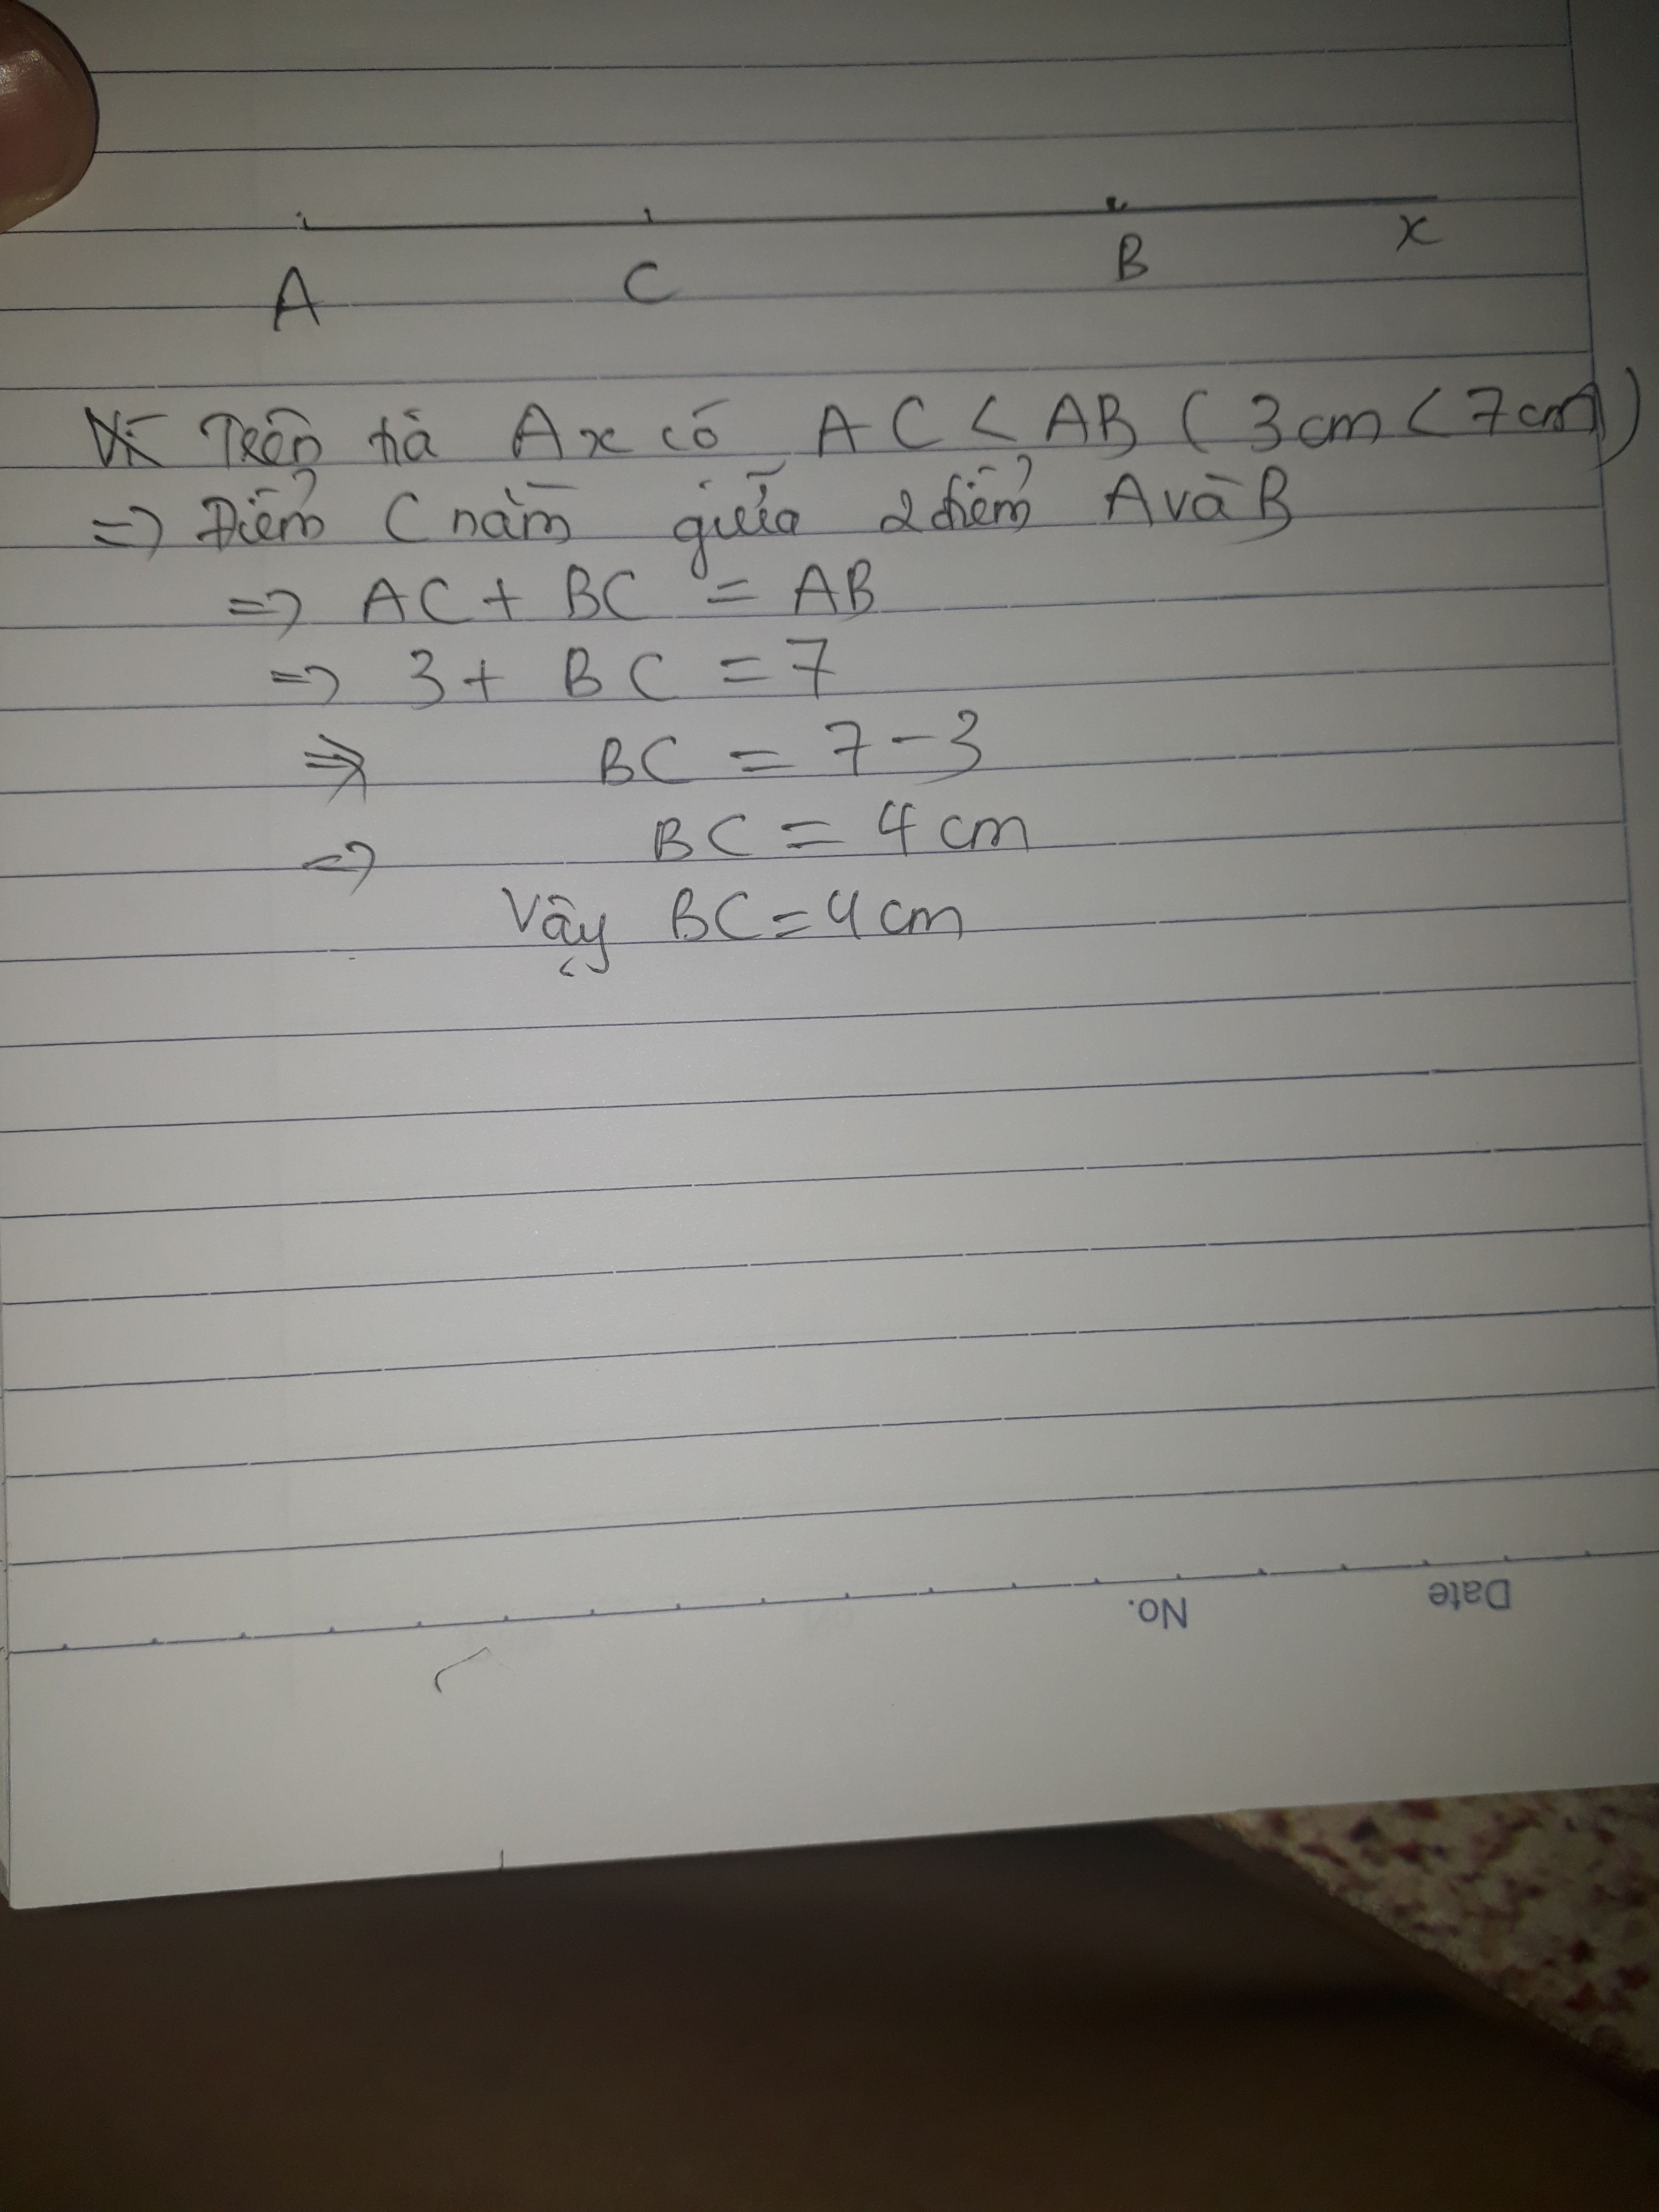 A C B x
Vì Trên tia Ax có AC < AB (3cm < 7cm)
=> Điểm C nằm giữa 2 điểm A và B
=> AC + BC = AB
=> 3 + BC = 7
=> BC = 7 - 3
=> BC = 4 cm
Vậy BC = 4 cm
No. Date